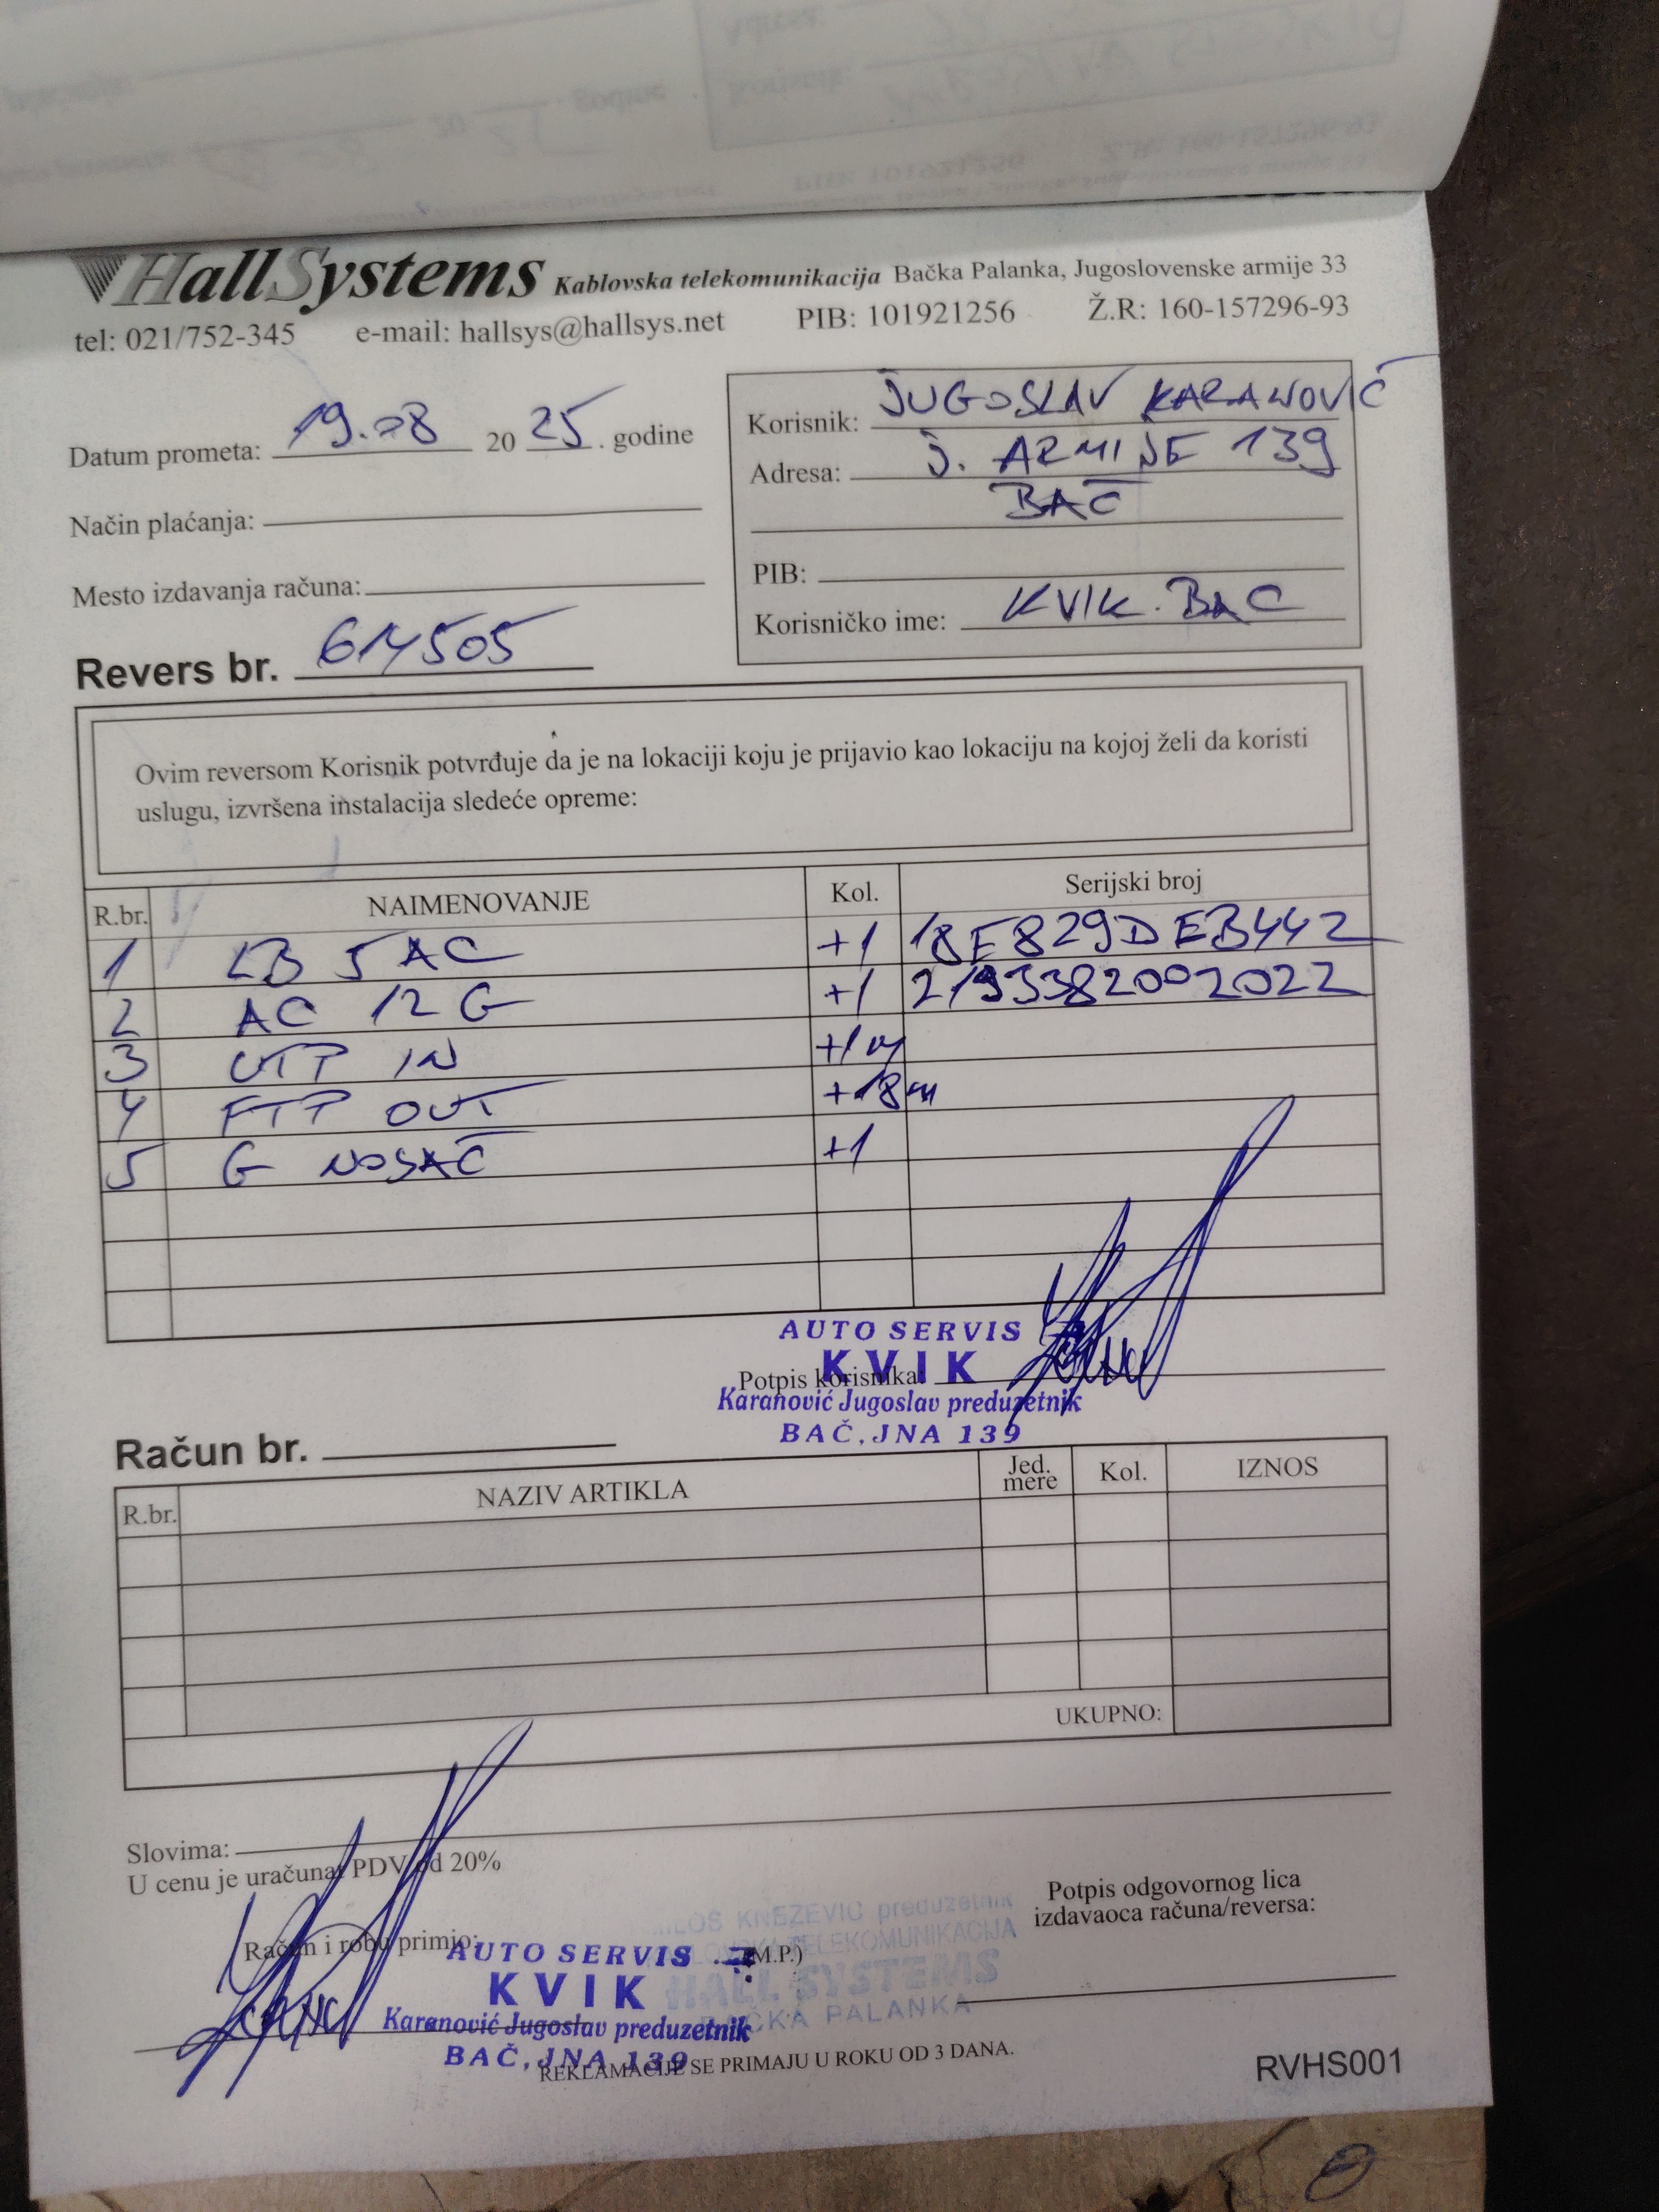 HallSystems Kablovska telekomunikacija Bačka Palanka, Jugoslovenske armije 33
tel: 021/752-345 e-mail: hallsys@hallsys.net PIB: 101921256 Ž.R: 160-157296-93
Datum prometa: 19.08 20 25. godine
Način plaćanja:
Mesto izdavanja računa:
Korisnik: JUGOSLAV KARANOVIĆ
Adresa: J. ARMIJE 139
BAČ
PIB:
Korisničko ime: KVIK.BAC
Revers br. 614505
Ovim reversom Korisnik potvrđuje da je na lokaciji koju je prijavio kao lokaciju na kojoj želi da koristi
uslugu, izvršena instalacija sledeće opreme:
R.br. NAIMENOVANJE Kol. Serijski broj
1 LB 5 AC +1 18E829DEB442
2 AC 12 G +1 2193382002022
3 UTP IN +1m
4 FTP OUT +18m
5 G NOSAČ +1
AUTO SERVIS
KVIK
Potpis korisnika:
Karanović Jugoslav preduzetnik
BAČ, JNA 139
Račun br.
R.br. NAZIV ARTIKLA Jed. mere Kol. IZNOS
UKUPNO:
Slovima:
U cenu je uračunat PDV od 20%
Potpis odgovornog lica
izdavaoca računa/reversa:
Račun i robu primio:
(M.P.)
MILOŠ KNEŽEVIĆ preduzetnik
TELEKOMUNIKACIJA
HALL SYSTEMS
BAČKA PALANKA
AUTO SERVIS
KVIK
Karanović Jugoslav preduzetnik
BAČ, JNA 139
REKLAMACIJE SE PRIMAJU U ROKU OD 3 DANA.
RVHS001